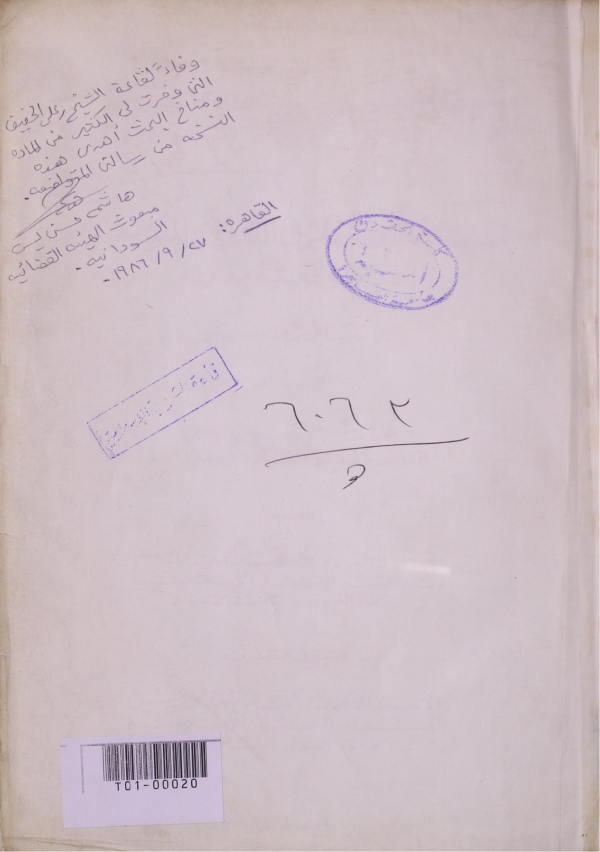 وفاءً لقاعة الشيخ على الخفيف
التى وفرت لى الكثير من المادة
ومناخ البحث أهدى هذه
النسخة من رسالتى المتواضعة.
هاشم حسن يس
مبعوث الهيئة القضائية
السودانية.
القاهرة: ٢٧/٩/١٩٨٦
قاعة الشريعة الإسلامية
٦٠٦٢
T01-00020